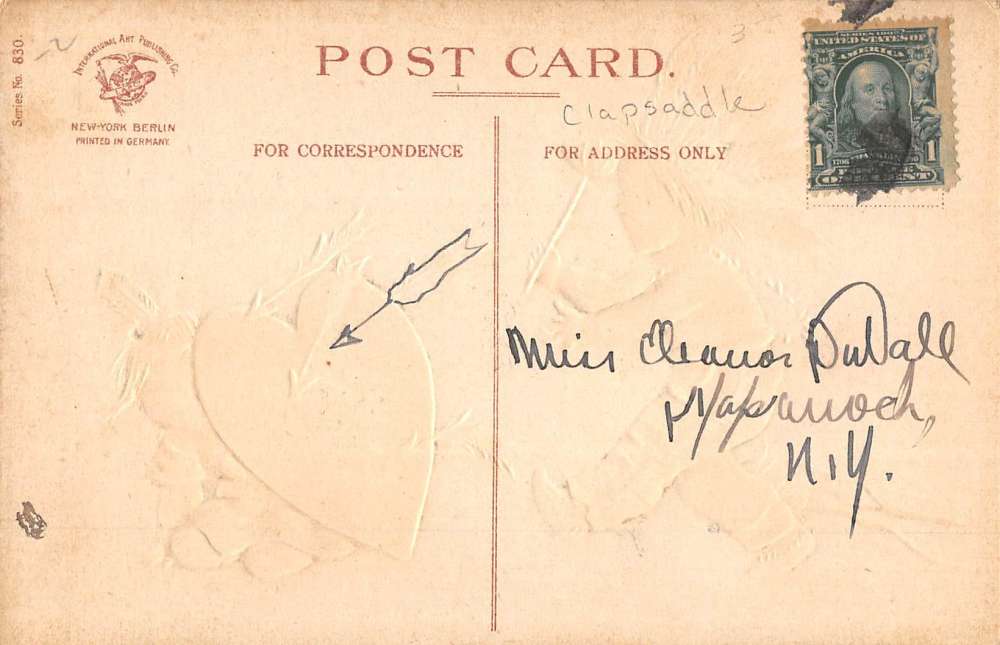 Series No. 830.
INTERNATIONAL ART PUBLISHING CO.
NEW-YORK BERLIN
PRINTED IN GERMANY
POST CARD.
Clapsaddle
3
FOR CORRESPONDENCE
FOR ADDRESS ONLY
SERIES 1902
UNITED STATES OF
AMERICA
1 1
FRANKLIN
Miss Eleanor DuVall
Napanoch,
N.Y.